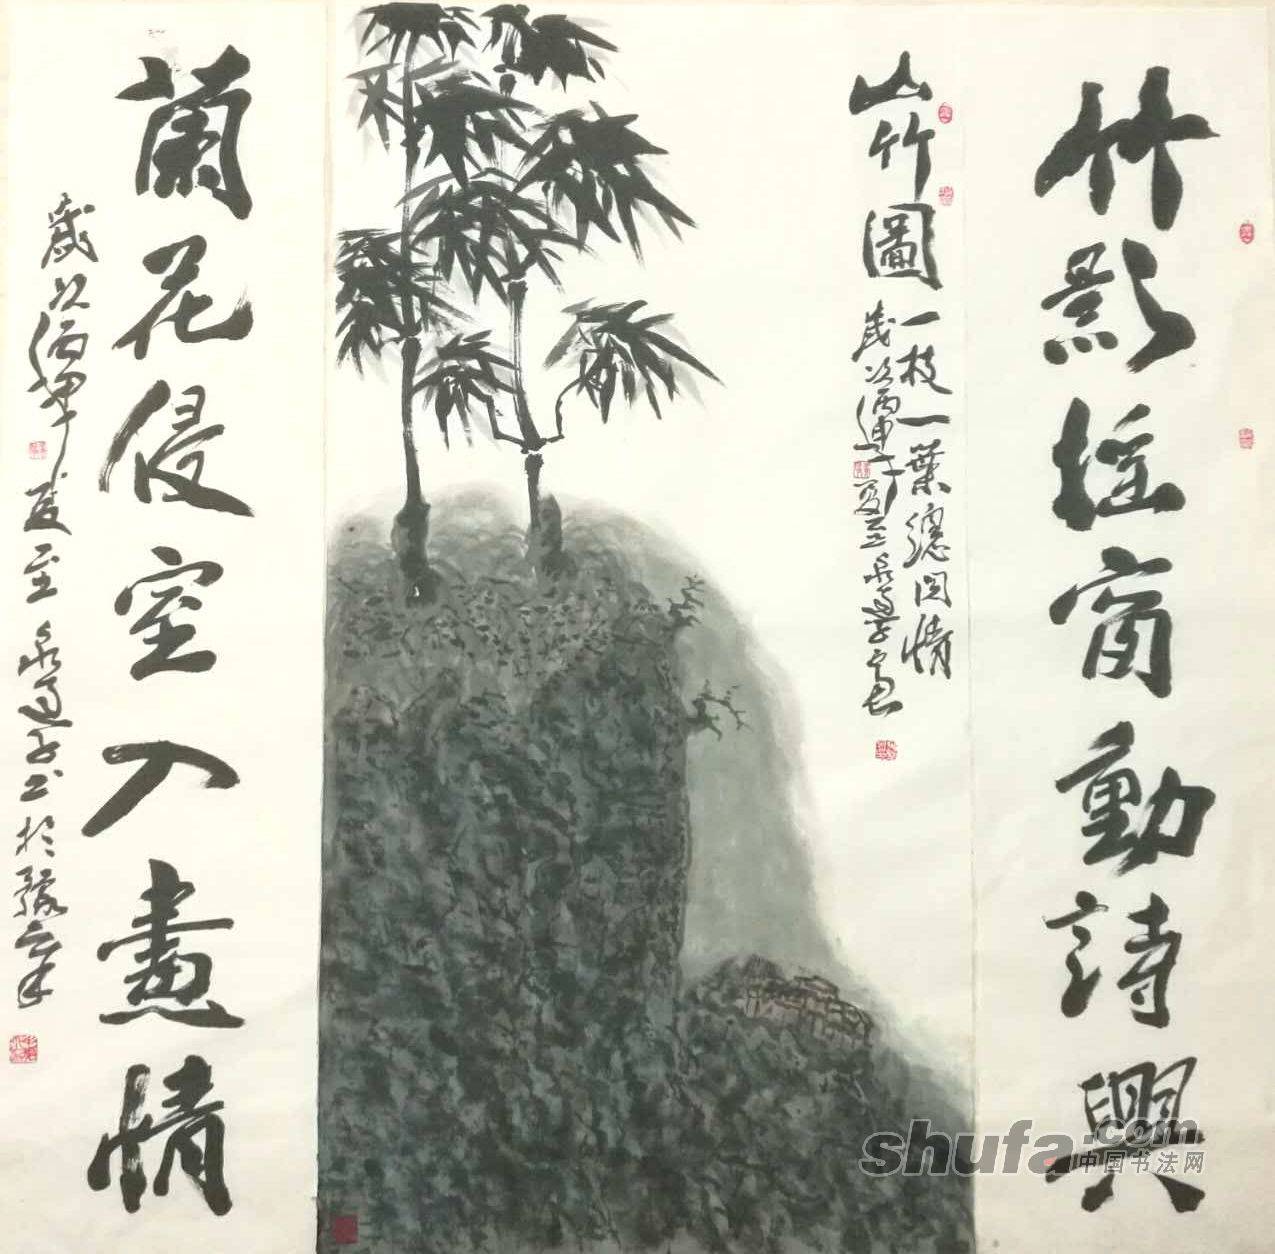 竹影摇窗動詩興
山竹圖
一枝一葉總関情
歲次丙申夏至
蘭花侵室入畫情
歲次丙申夏至
書於豫章
shufa.com
中国书法网